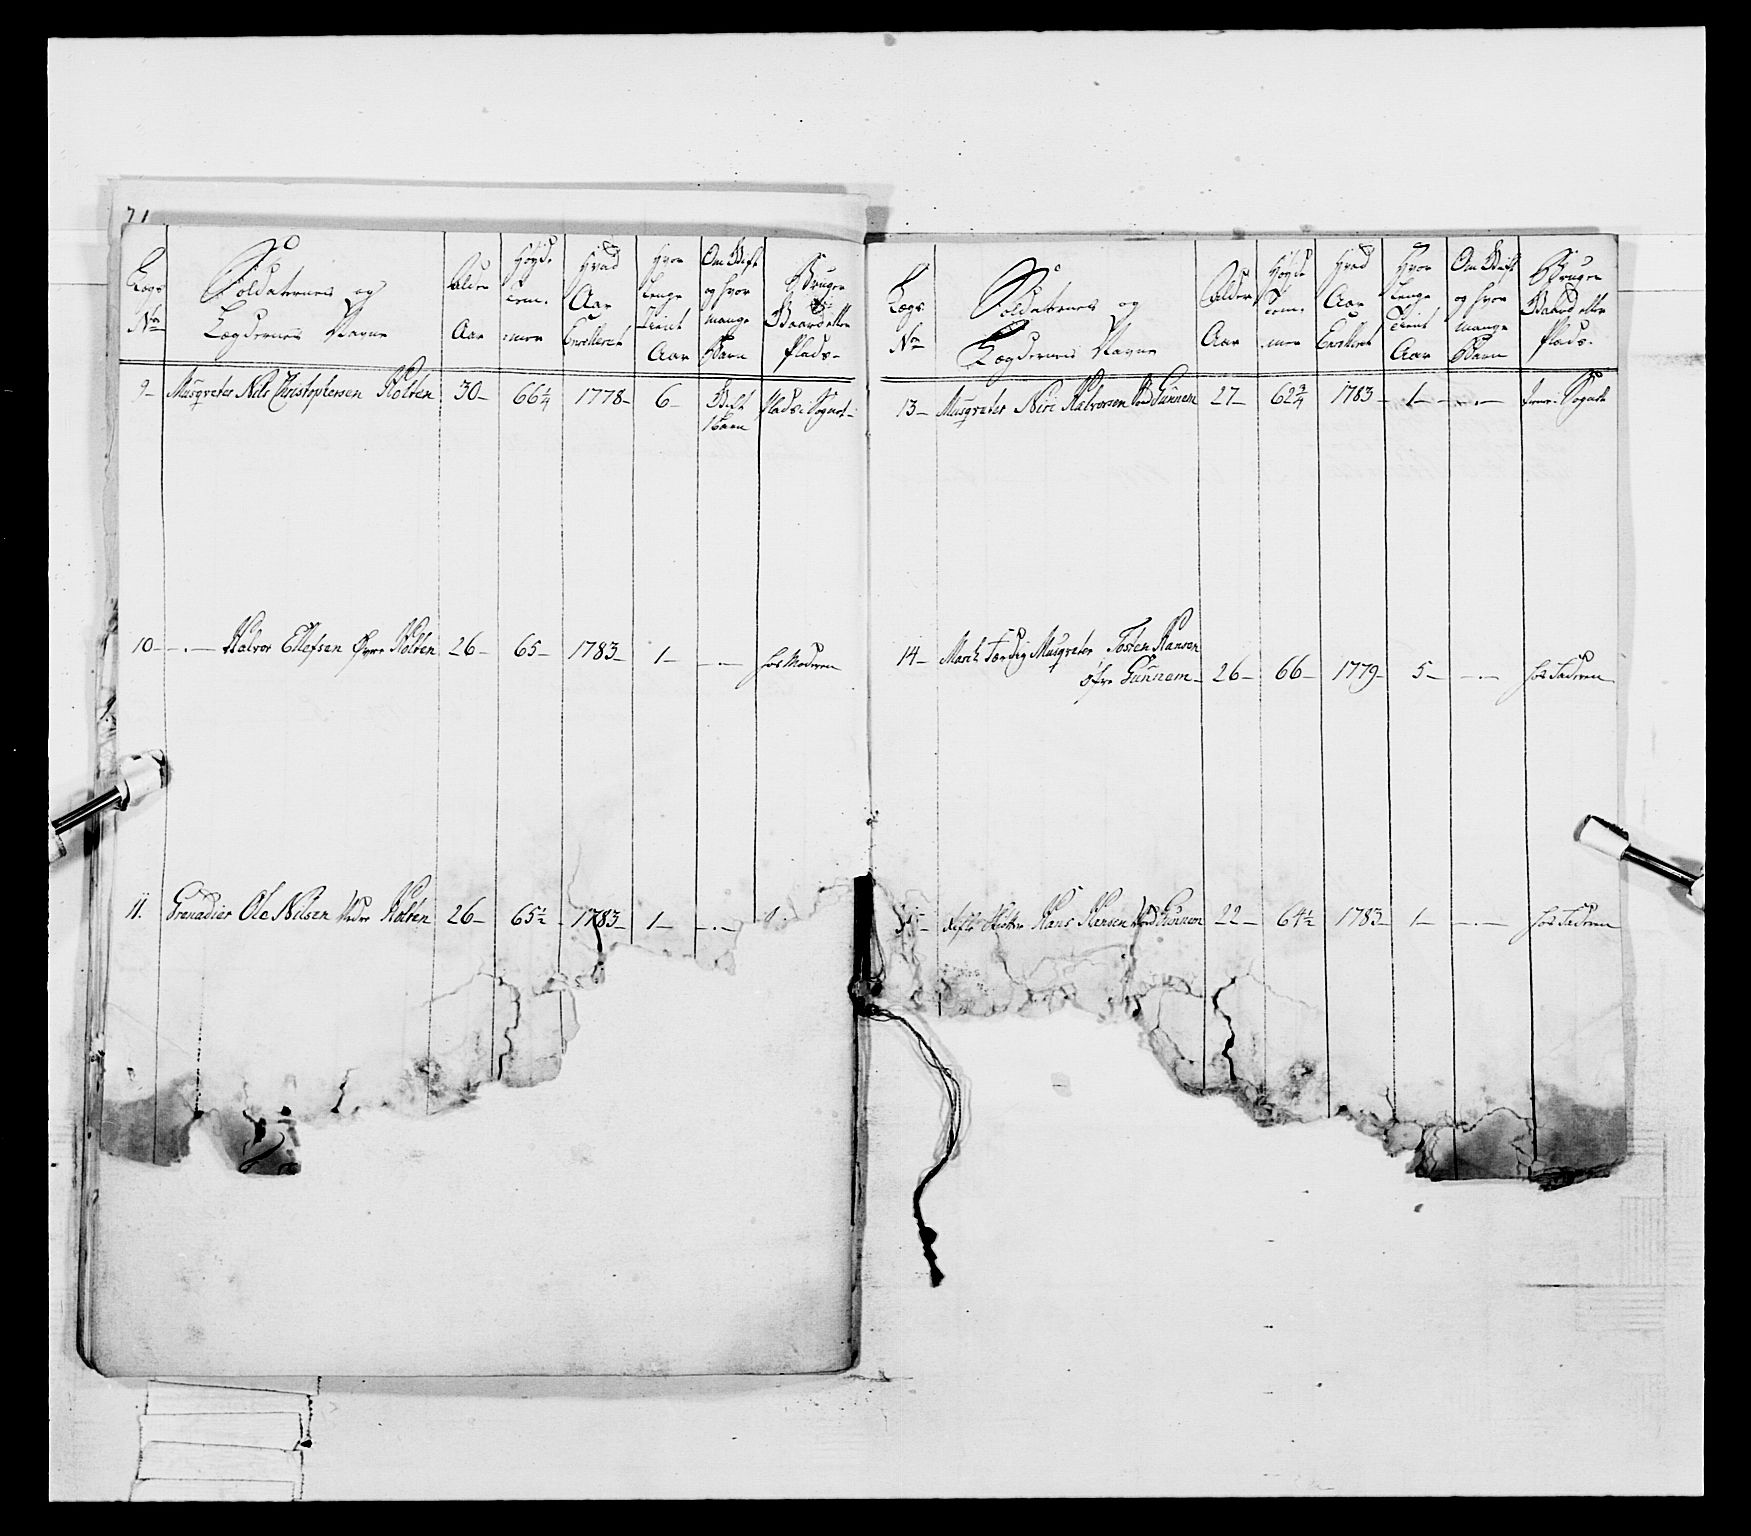 71
Lægs
No
Soldaternes og
Lægdernes Nafne
Alder
Aar
Høyde
Tom-
mer
Hvad
Aar
Enrolleret
Hvor
Længe
Tient
Aar
Om Gift
og hvor
mange
Børn
Bruger
Gaard eller
Plads-
9- Musqueter Nils Christophersen Holten 30- 66 1/4 1778- 6- Gift Plads:
1 Barn
10- -.- Halvor Ellefsen Øvre Holten 26- 65- 1783- 1- -.- hos Moderen
11. Grenadier Ole Nilsen Neder Holten 26- 65 1/2 - 1783- 1- -.-
Lægs
No
Soldaternes og
Lægdernes Nafne
Alder
Aar
Høyde
Tom-
mer
Hvad
Aar
Enrolleret
Hvor
Længe
Tient
Aar
Om Gift
og hvor
mange
Børn
Bruger
Gaard eller
Plads-
13- Musqueter Halvorsen Gunnem 27- 62 3/4 1783- 1- -.-
14- Musqueter Tosten Hansen
øfre Gunnem- 26- 66- 1779- 5- -.- hos Faderen
Hans Hansen Gunnem 22- 64 1/2 1783- 1- -.- hos Faderen